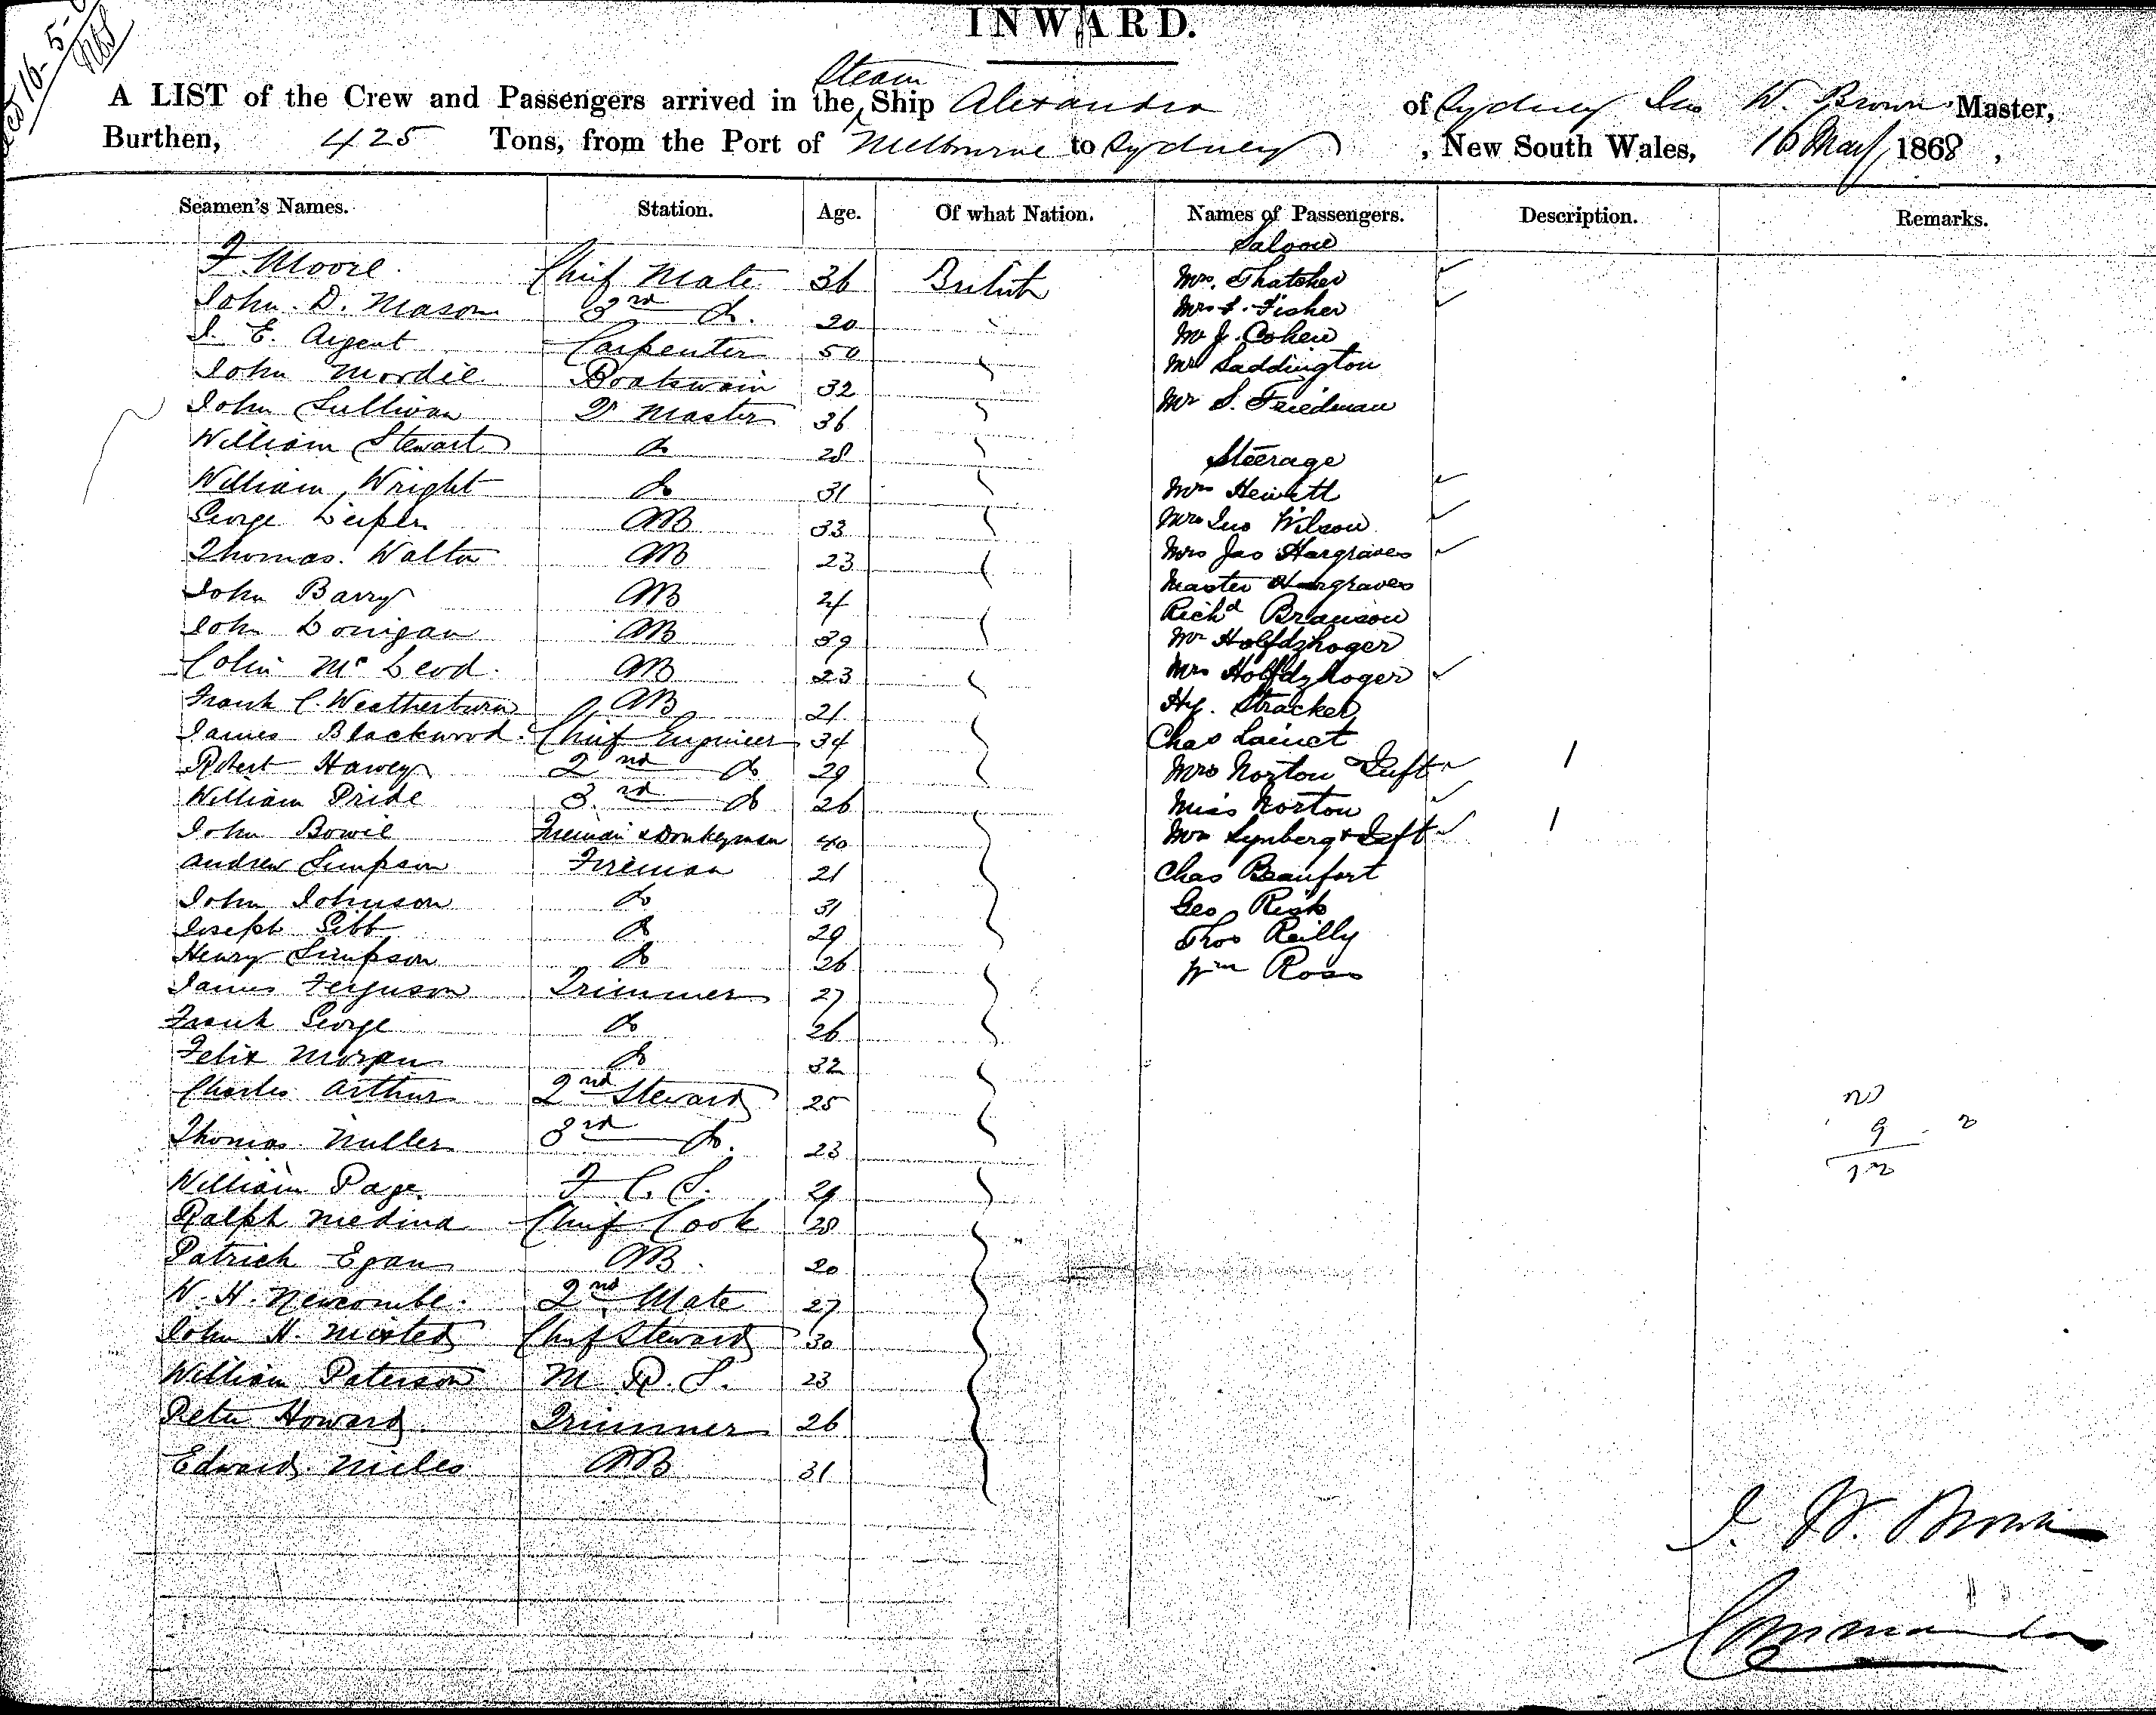 16-5-6
INWARD.
Steam
A LIST of the Crew and Passengers arrived in the Ship Alexandra of Sydney Jno W. Brown Master,
Burthen, 425 Tons, from the Port of Melbourne to Sydney, New South Wales, 16 May 1868,
Seamen's Names. Station. Age. Of what Nation. Names of Passengers. Description. Remarks.
Saloon
F. Moore Chief Mate 36 British Mrs. Thatcher
John D. Mason 3rd do. 20 Mrs Fisher
J. E. Argent Carpenter 50 Mr J. Cohen
John Mordie Boatswain 32 Mr Saddington
John Sullivan Qr Master 36 Mr S. Friedman
William Stewart do 28 Steerage
William Wright do 31 Mrs Hewett
George AB 33 Mrs Jno Wilson
Thomas Walton AB 23 Mrs Jas Hargraves
John Barry AB 24 Master Hargraves
John Donigan AB 39 Richd Branson
Colin McLeod AB 23 Mr Holfdzhoger
Frank C. Weatherburn AB 21 Mrs Holfdzhoger
James Blackwood Chief Engineer 34 Hy. Stracker
Robert Harvey 2nd do 29 Chas Lainct
William Pride 3rd do 26 Mrs Norton & Inft 1
John Bowie Fireman & Donkeyman 40 Miss Norton
Andrew Simpson Fireman 21 Mrs Lynberg & Inft 1
John Johnson do 31 Chas Beaufort
Joseph Gibb do 29 Geo Risk
Henry Simpson do 26 Thos Reilly
James Ferguson Trimmer 27 Wm Ross
Frank George do 26
Felix Morgan do 32
Charles Arthur 2nd Steward 25
Thomas Nuller 3rd do. 23
William Page F. C. S. 29
Ralph Medina Chief Cook 28
Patrick Egan AB 20
W. H. Newcombe 2nd Mate 27
John H. Chief Steward 30
William Paterson M. R. S. 23
Peter Howard Trimmer 26
Edward Miles AB 31
9
J. W. Brown
Commander